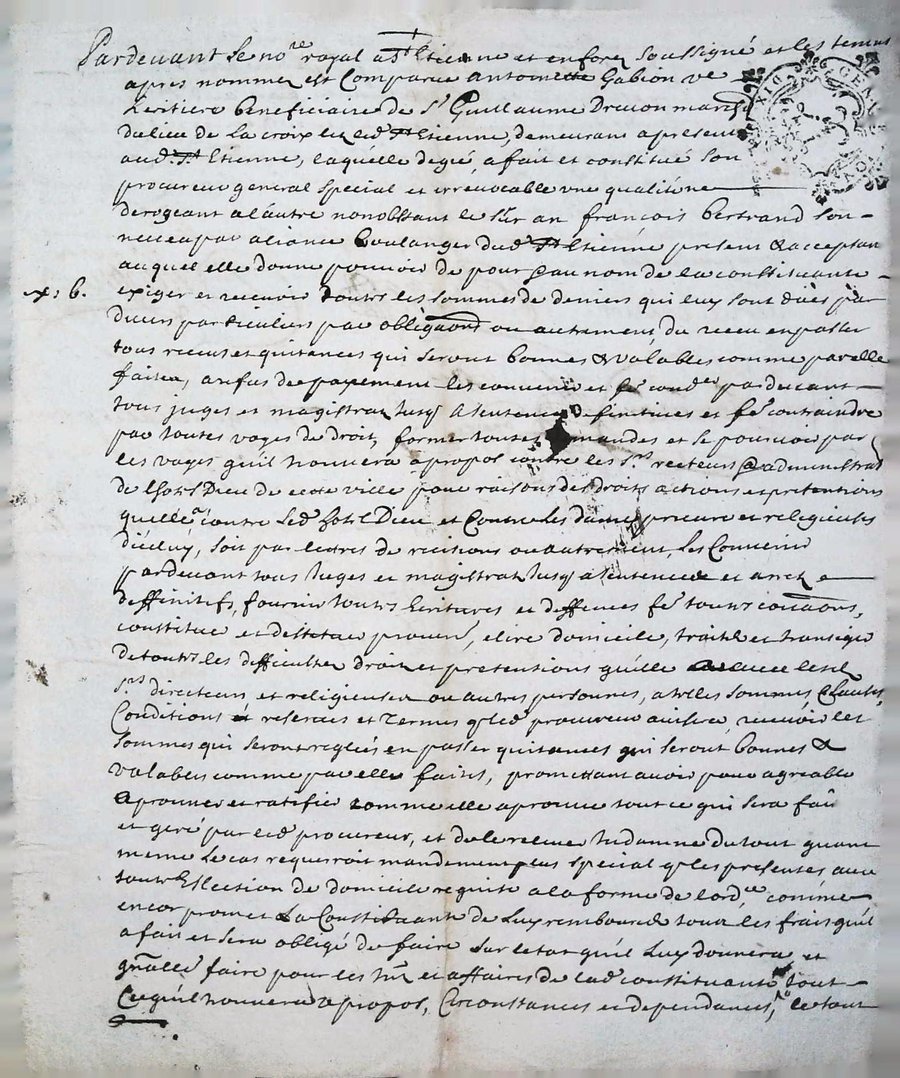 Pardevant le no.re royal a St Etienne et en forez soussigné et les temoins
apres nommez est Comparue antoinette Gabion ve
heritiere beneficiaire de Sr Guillaume Drevon march
du lieu de La croix lez led St Etienne, demeurant a present
aud St Etienne, laquelle de gré a fait et constitué son
procureur general special et irrevocable une qualité ne
derogeant a lautre nonobstant le Sieur françois bertrand son
neveu par aliance boulanger dud St Etienne present & acceptan
auquel elle donne pouvoir de pour & au nom de la constituante
exiger et recevoir toutes les sommes de deniers qui luy sont dües par
divers particuliers par obligaons ou autrement, du receu en passer
tous receus et quitances qui seront bonnes & valables comme par elle
faites, au refus de payement les convenir et fe conder pardevant
tous juges et magistrat jusq a sentences definitives et fe contraindre
par toutes voyes de droit, former toutes demandes et se pourvoir par
les voyes qu'il trouvera apropos contre les Srs recteurs & administra
de lhotel Dieu de cette ville pour raisons des droits actions et pretentions
quelle a contre led hotel Dieu et Contre Les dames prieure et religieuses
d'iceluy, soit par lettres de recisions ou autrement, Les Convenir
pardevant tous Juges et magistrat jusq a sentences et arrets
deffinitifs, fournir toutes Ecritures et deffences fe toutes
constitue et destitue procur, elire domicile, traiter et transiger
de toutes les difficultes droits et pretentions qu'elle a avec lesd
Srs directeurs et religieuses ou autres personnes, a telles sommes, Clauses,
Conditions reserves et Termes q led procureur avisera, recevoir les
sommes qui seront reglées en passer quitances qui seront bonnes &
valables comme par elle faites, promettant avoir pour agreable
aprouver et ratifier comme elle aprouve tout ce qui sera fait
et geré par led procureur, et de le relever Indamne du tout quant
meme le cas requerroit mandement plus special q les presentes avec
toute Ellection de domicile requise a la forme de lord.ce comme
encor promet La Constituante de Luy rembourcer tous les frais qu'il
a fait et sera obligé de faire sur letat qu'il Luy donnera et
gnallt faire pour les et affaires de lad constituante tout
Ce qu'il trouvera apropos, Circonstances et dependances, le tout